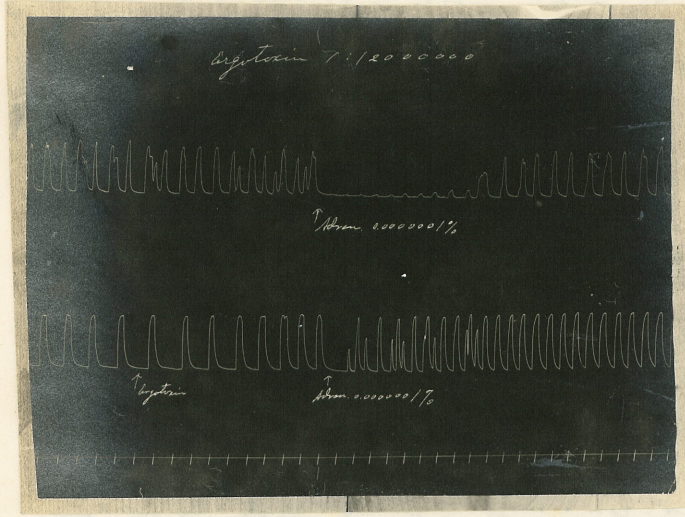 Ergotoxin 1:12000000
Adren. 0.0000001%
Ergotoxin
Adren. 0.0000001%